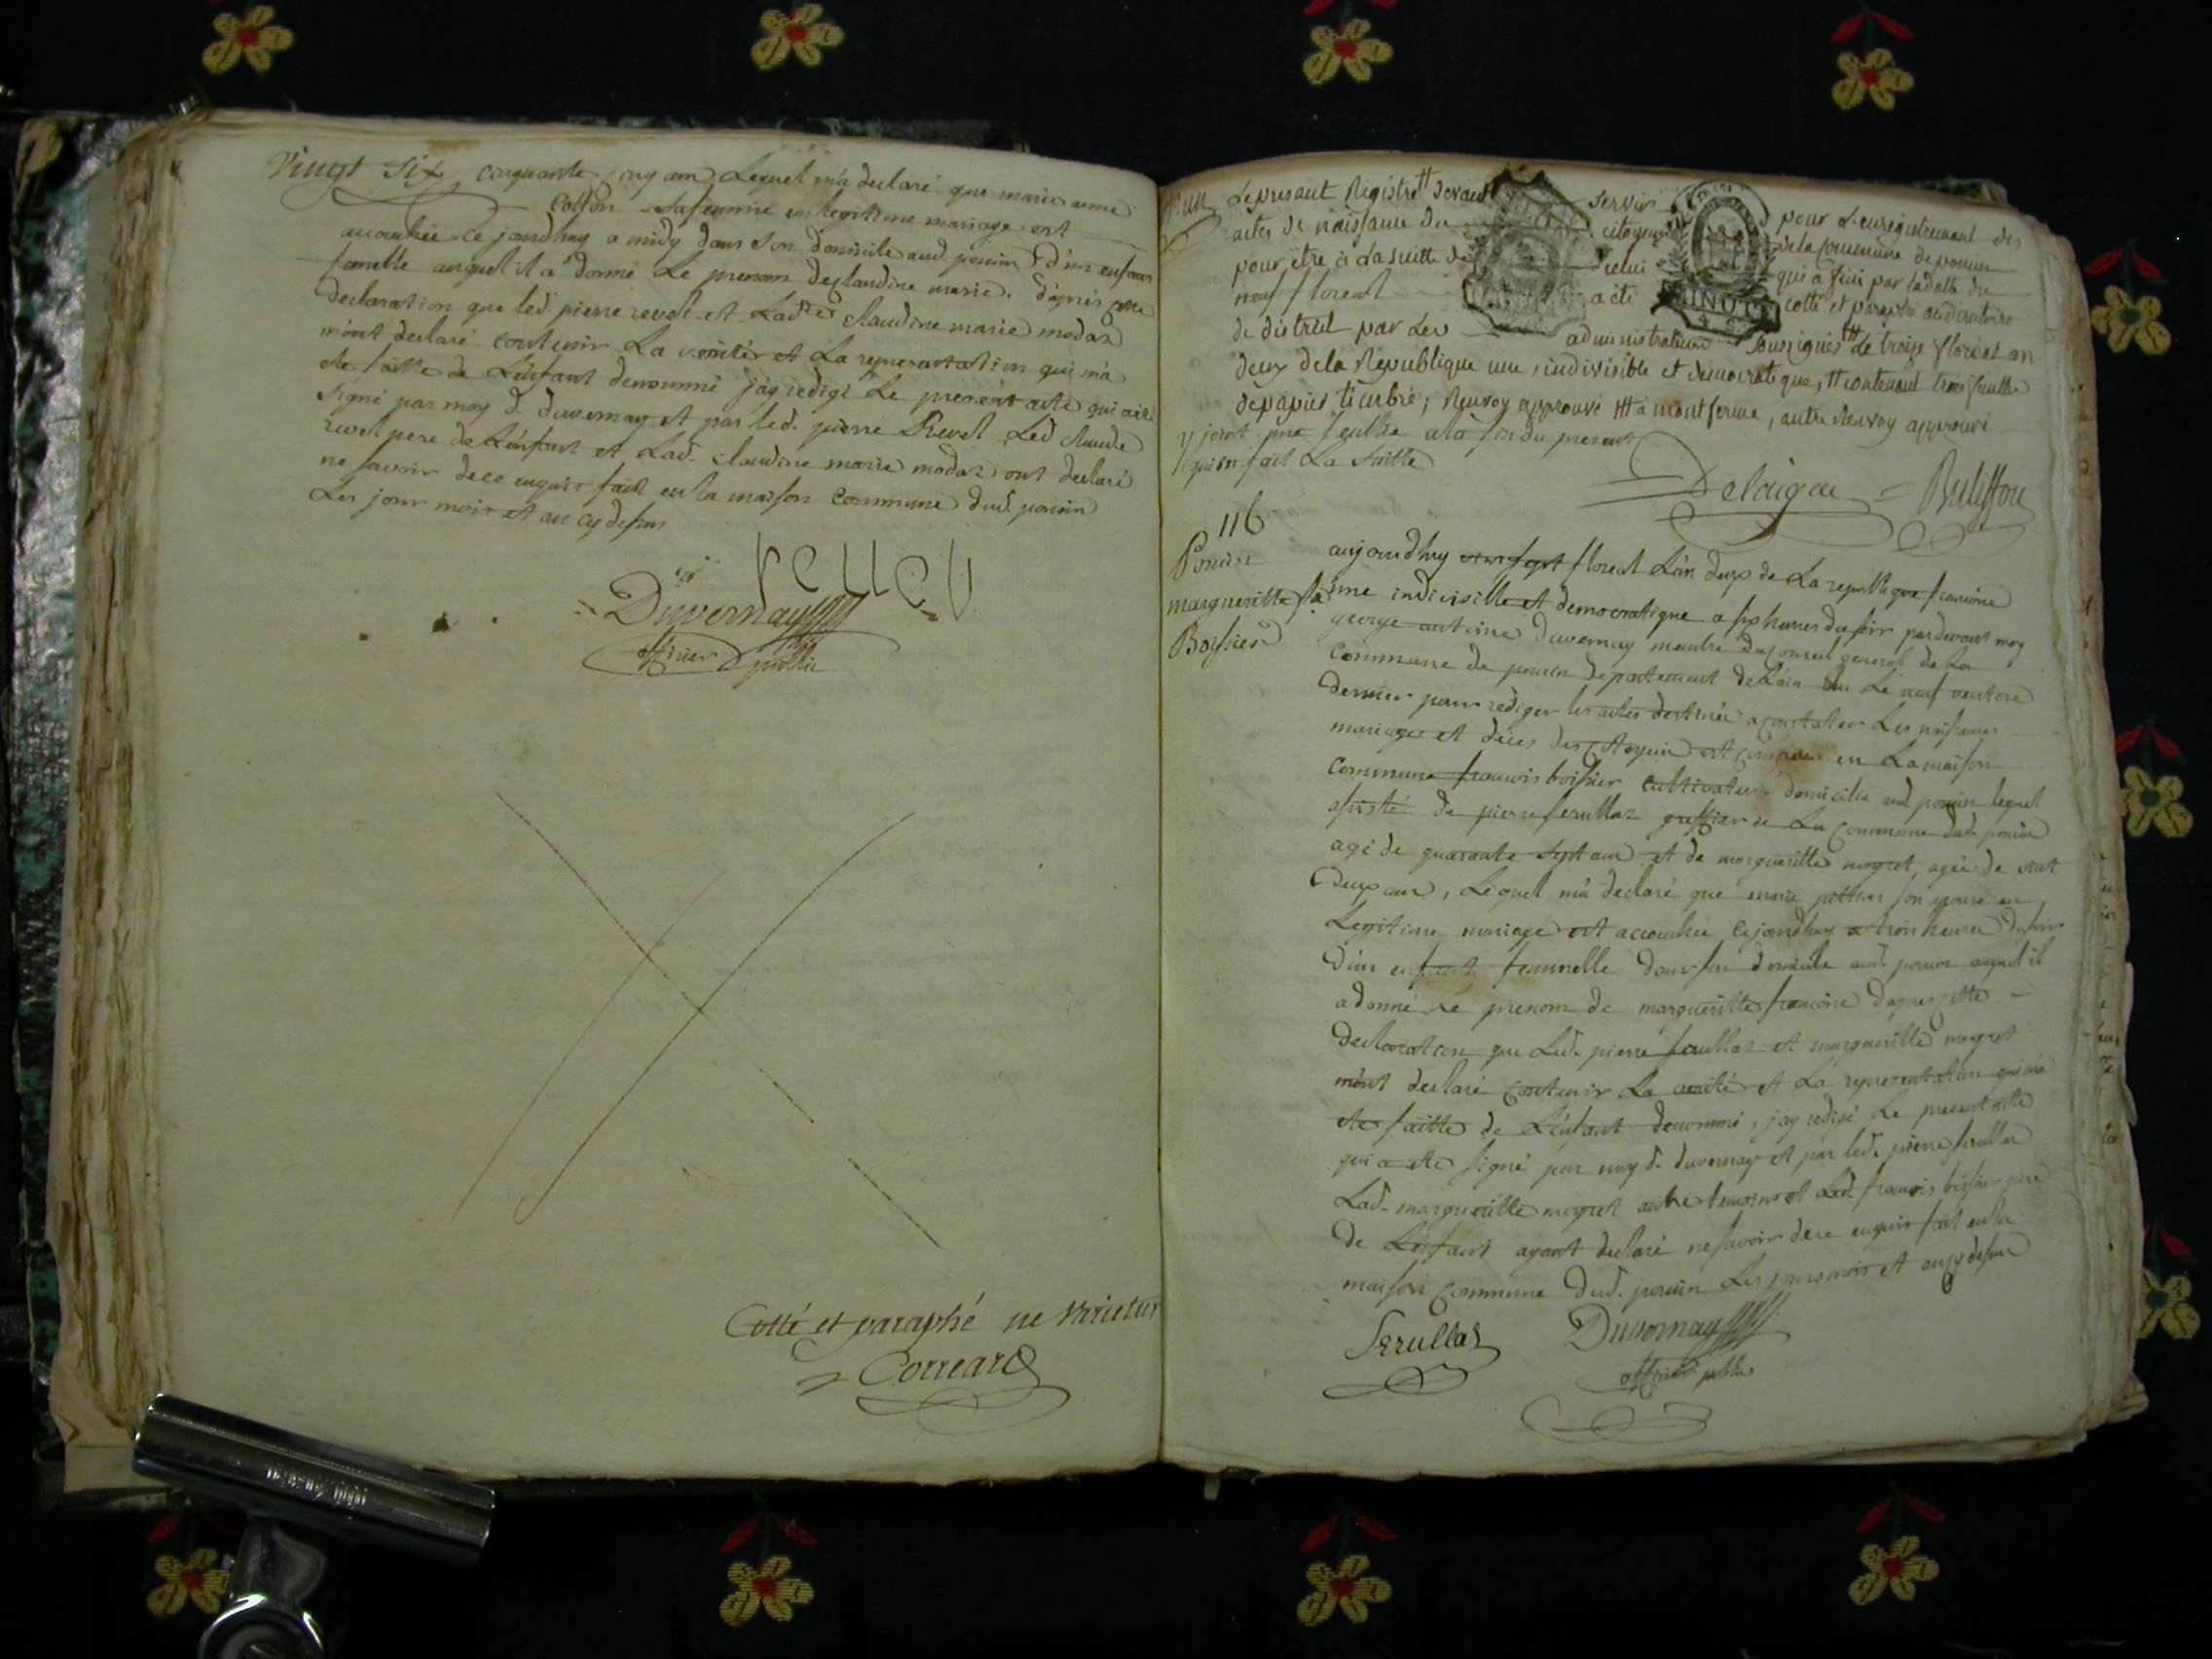 Vingt Six cinquante cinq ans Lequel m'a declaré que marie anne
Colfon Sa femme en legitime mariage est
accouchée ce jourdhuy a midy dans Son domicile aud. poncin d'un enfant
femelle auquel il a donné Le prenom de claudine marie. d'après cette
declaration que led. pierre revel et Lad. claudine marie modas
m'ont declaré contenir La verité et La representation qui m'a
eté faitte de L'enfant denommé j'ay redigé Le present acte qui a eté
Signé par moy d. duvernay et par led. pierre Revel Led. claude
revel pere de L'enfant et Lad. claudine marie modas ont declaré
ne savoir de ce enquis fait en la maison Commune dud. poncin
Les jour mois et an cy dessus
revel
Duvernay
officier public
Cotté et paraphé ne Varietur
Correard
Le present Registre devant servir pour L'enregistrement des
actes de naissance du citoyen de la commune de poncin
pour être à la suitte de celui qui a fini par la datte du
neuf floreal acte cotté et paraphé au directoire
de district par Les administrateurs soussignés le treize floreal an
deux de la Republique une, indivisible et democratique, contenant trois feuilles
de papier timbré; Renvoy approuvé a montferme, autre Renvoy approuvé
y joint une feuille a la fin du present
qui en fait La Suitte
Delaigue = Bulisfou
116
Poncin
margueritte fse
Boissier
aujourdhuy floreal L'an deux de La republique francoise
une indivisille et democratique a six heures du soir par devant moy
george antoine Duvernay membre du conseil general de La
Commune de poncin departement de L'ain elu Le neuf ventose
dernier pour rediger les actes destinés a constater Les naissances
mariages et décès des citoyens est comparu en La maison
Commune francois boissier Cultivateur domicilié aud poncin lequel
assisté de pierre ferullaz greffier de La Commune dud. poncin
agé de quarante sept ans et de margueritte mogret agée de
deux ans, Lequel m'a declaré que marie son epouse en
Legitime mariage est accouchée cejourdhuy a trois heures du soir
d'un enfant femmelle dans son domicile aud. poncin auquel il
a donné Le prenom de margueritte francoise d'apres cette
declaration que Led. pierre ferullaz et margueritte mogret
m'ont declaré contenir La verité et La representation qui m'a
eté faitte de L'enfant denommé, j'ay redigé Le present acte
qui a eté signé par moy d. duvernay et par led. pierre ferullaz
Lad. margueritte mogret autre temoins et Led. francois boissier pere
de L'enfant ayant declaré ne savoir de ce enquis fait en la
maison Commune dud. poncin Les jours mois et an cy dessus
Ferullaz Duvernay
officier public